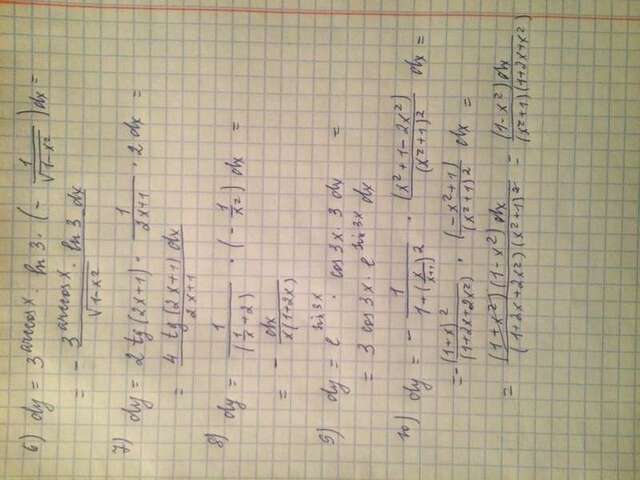 6) dy = 3^arccos x · ln 3 · (- 1/√(1-x²)) dx =
= - (3^arccos x · ln 3 dx)/√(1-x²)
7) dy = 2 tg(2x+1) · 1/(2x+1) · 2 dx =
= (4 tg(2x+1) dx)/(2x+1)
8) dy = 1/((1/x + 2)) · (- 1/x²) dx =
= - dx/(x(1+2x))
9) dy = e^sin 3x · cos 3x · 3 dx =
= 3 cos 3x · e^sin 3x dx
10) dy = - 1/(1+(x/(x+1))²) · (x²+1-2x²)/(x²+1)² dx =
= - (1+x)²/(1+2x+2x²) · (-x²+1)/(x²+1)² dx =
= ((1+x²)(1-x²) dx)/((1+2x+2x²)(x²+1)²) = ((1-x²) dx)/((x²+1)(1+2x+x²))